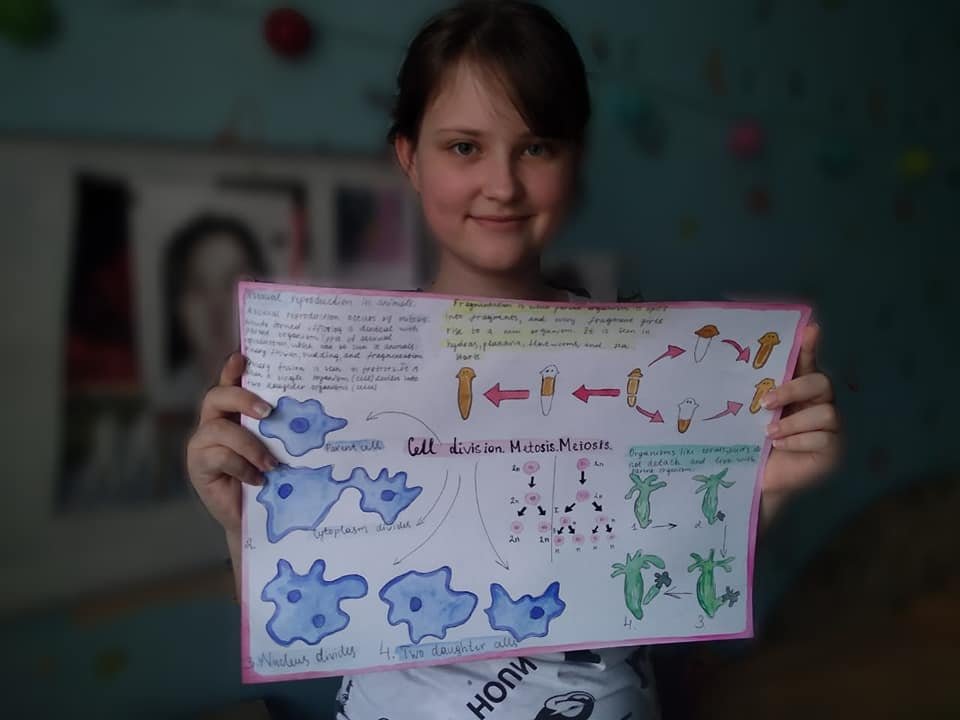 Asexual reproduction in animals.
Asexual reproduction occurs by mitosis
parent organism, type of asexual
reproduction, which can be seen in animals:
binary fission, budding, and fragmentation
Binary fission is seen in
when a single organism (cell) divides into
two daughter organisms (cells)
Fragmentation is when parent organism is split
into fragments, and every fragment gives
rise to a new organism. It is seen in
hydras, planaria, flatworms and sea
stars
Parent cell
Cell division. Mitosis. Meiosis.
Organisms like
not detach and live with
organism.
2n
2n
2n
2n
2n
2n
n
n
n
n
1.
2.
2.
Cytoplasm divides
3. Nucleus divides
4. Two daughter cells
4.
3.
НОПП